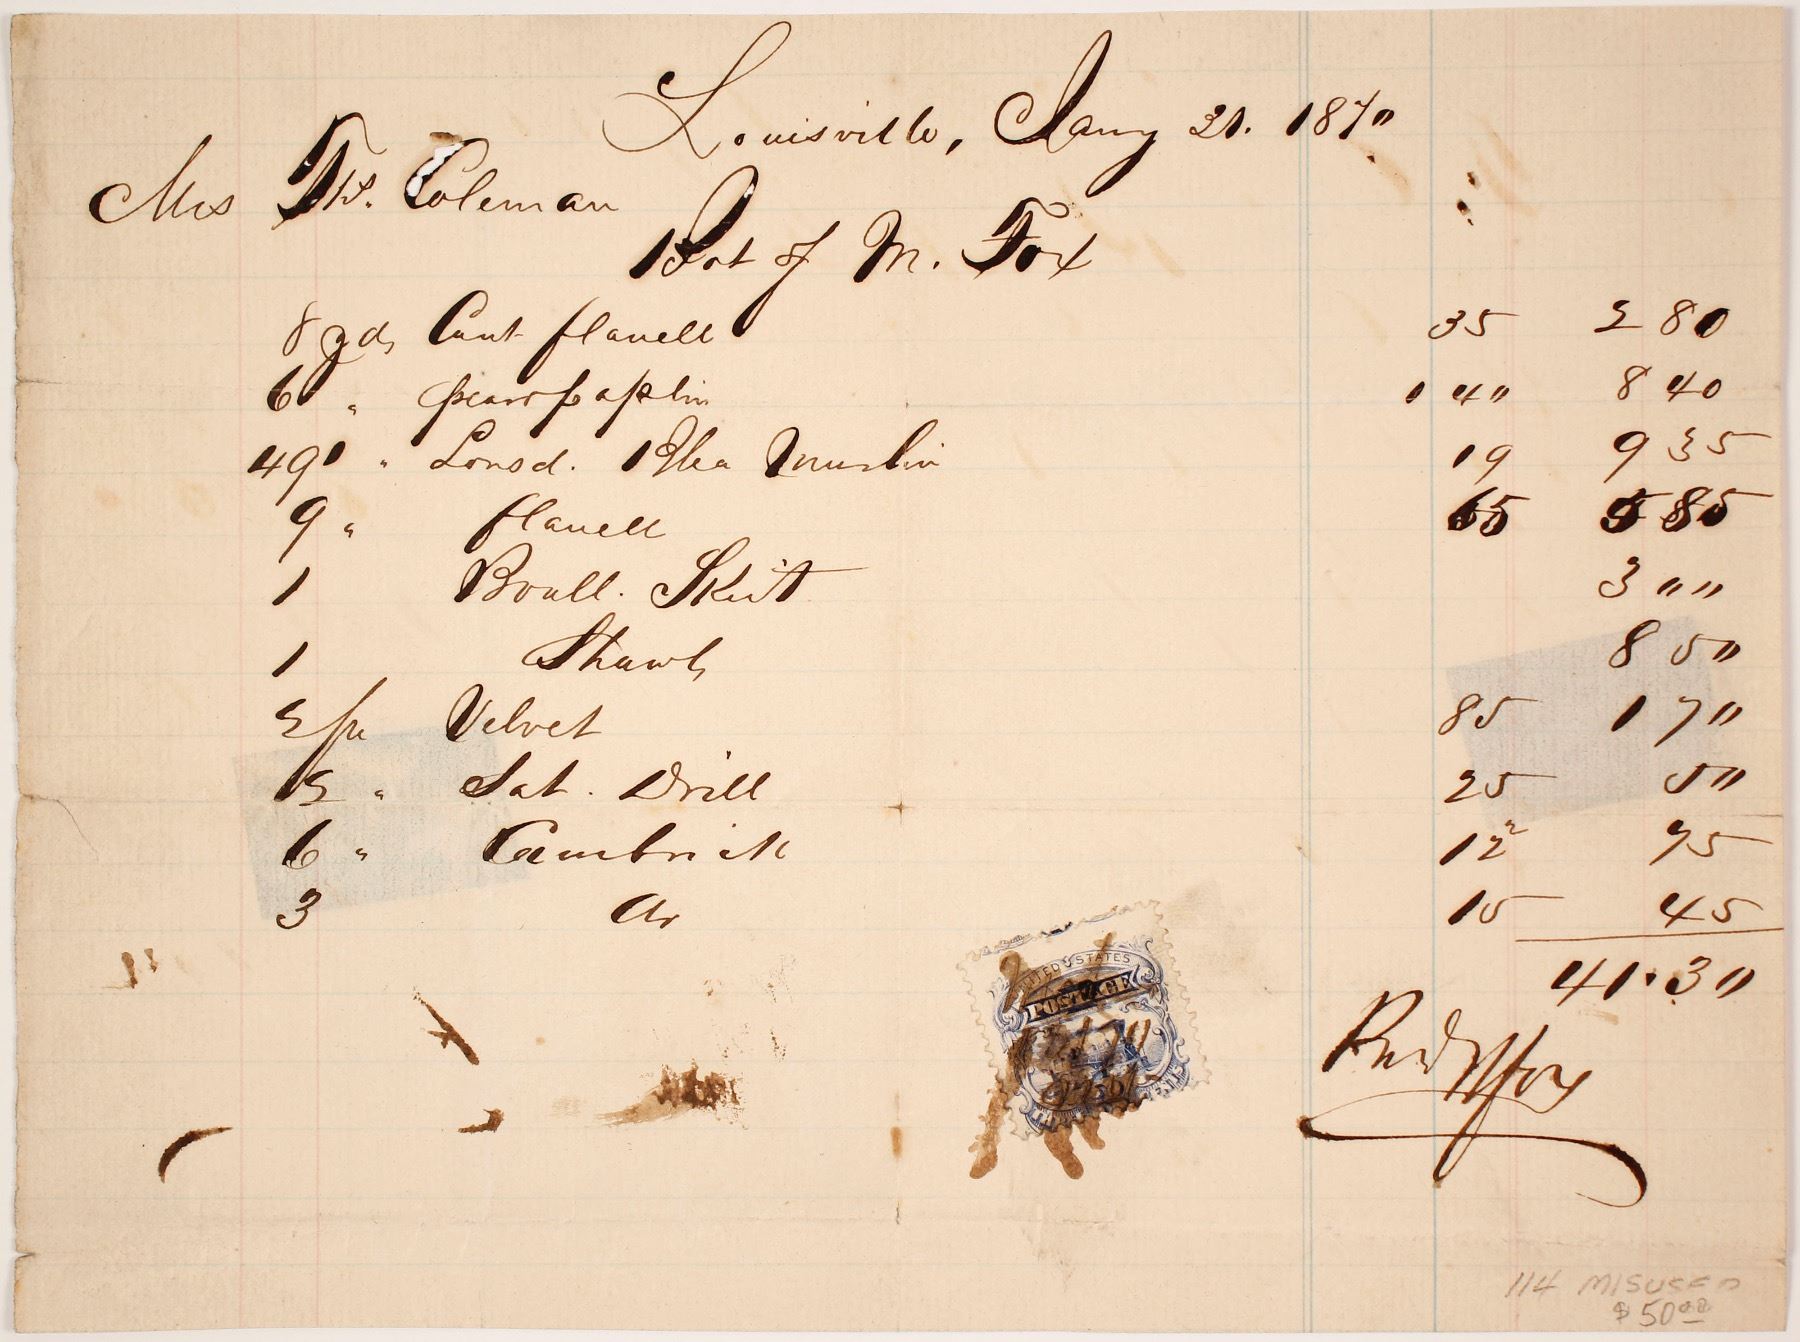 Louisville, Jany 21. 1870
Mrs Ths. Coleman
Bot of M. Fox
8 yds Cant flanell 35 2 80
6 " poplin 1 40 8 40
49 " Lonsd. Muslin 19 9 35
9 " flanell 65 5 85
1 Boull. Skirt 3 " "
1 Shawl 8 50
2 Velvet 85 1 70
2 " Sat. Drill 25 50
6 " Cambrick 12 75
3 do 15 45
41.30
UNITED STATES
POSTAGE
Recd M Fox
114 MISUSED
$50.00